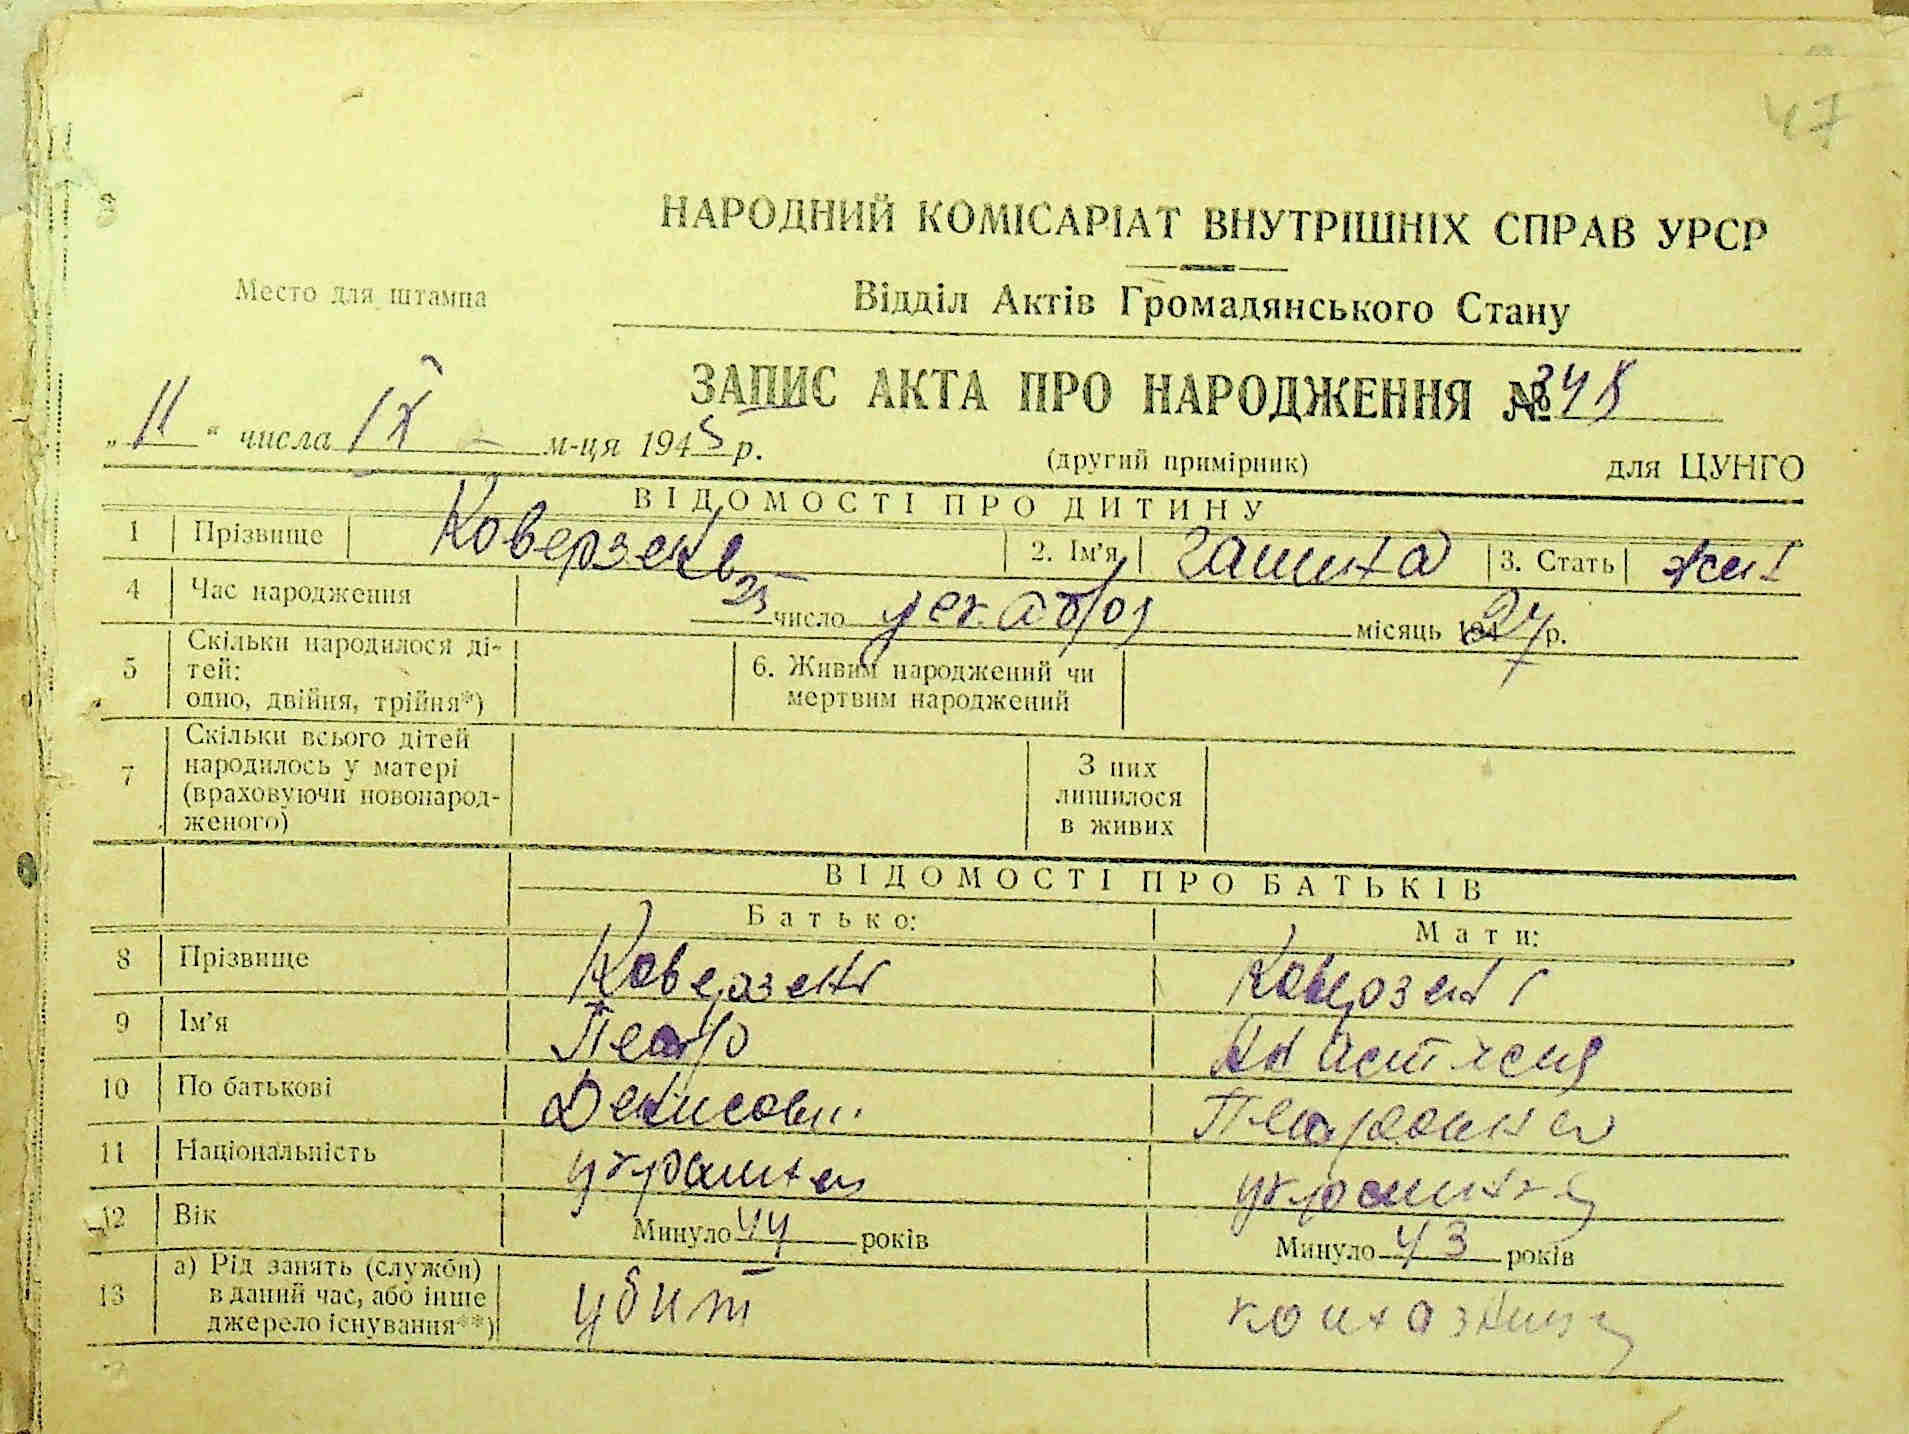 47
НАРОДНИЙ КОМІСАРІАТ ВНУТРІШНІХ СПРАВ УРСР
Место для штампа
Відділ Актів Громадянського Стану
ЗАПИС АКТА ПРО НАРОДЖЕННЯ № 348
„ 11 “ числа IX м-ця 1945 р.
(другий примірник) для ЦУНГО
ВІДОМОСТІ ПРО ДИТИНУ
1 Прізвище 2. Ім'я Галина 3. Стать жен
4 Час народження 25 число декабря місяць 1927 р.
5 Скільки народилося ді-
тей:
одно, двійня, трійня*)
6. Живим народжений чи
мертвим народжений
7 Скільки всього дітей
народилось у матері
(враховуючи новонарод-
женого)
З них
лишилося
в живих
ВІДОМОСТІ ПРО БАТЬКІВ
Батько: Мати:
8 Прізвище
9 Ім'я Петр Анастасия
10 По батькові Денисович
11 Національність украинец украинка
12 Вік Минуло 44 років Минуло 43 років
13 а) Рід занять (служби)
в даний час, або інше
джерело існування**)
убит колхозница